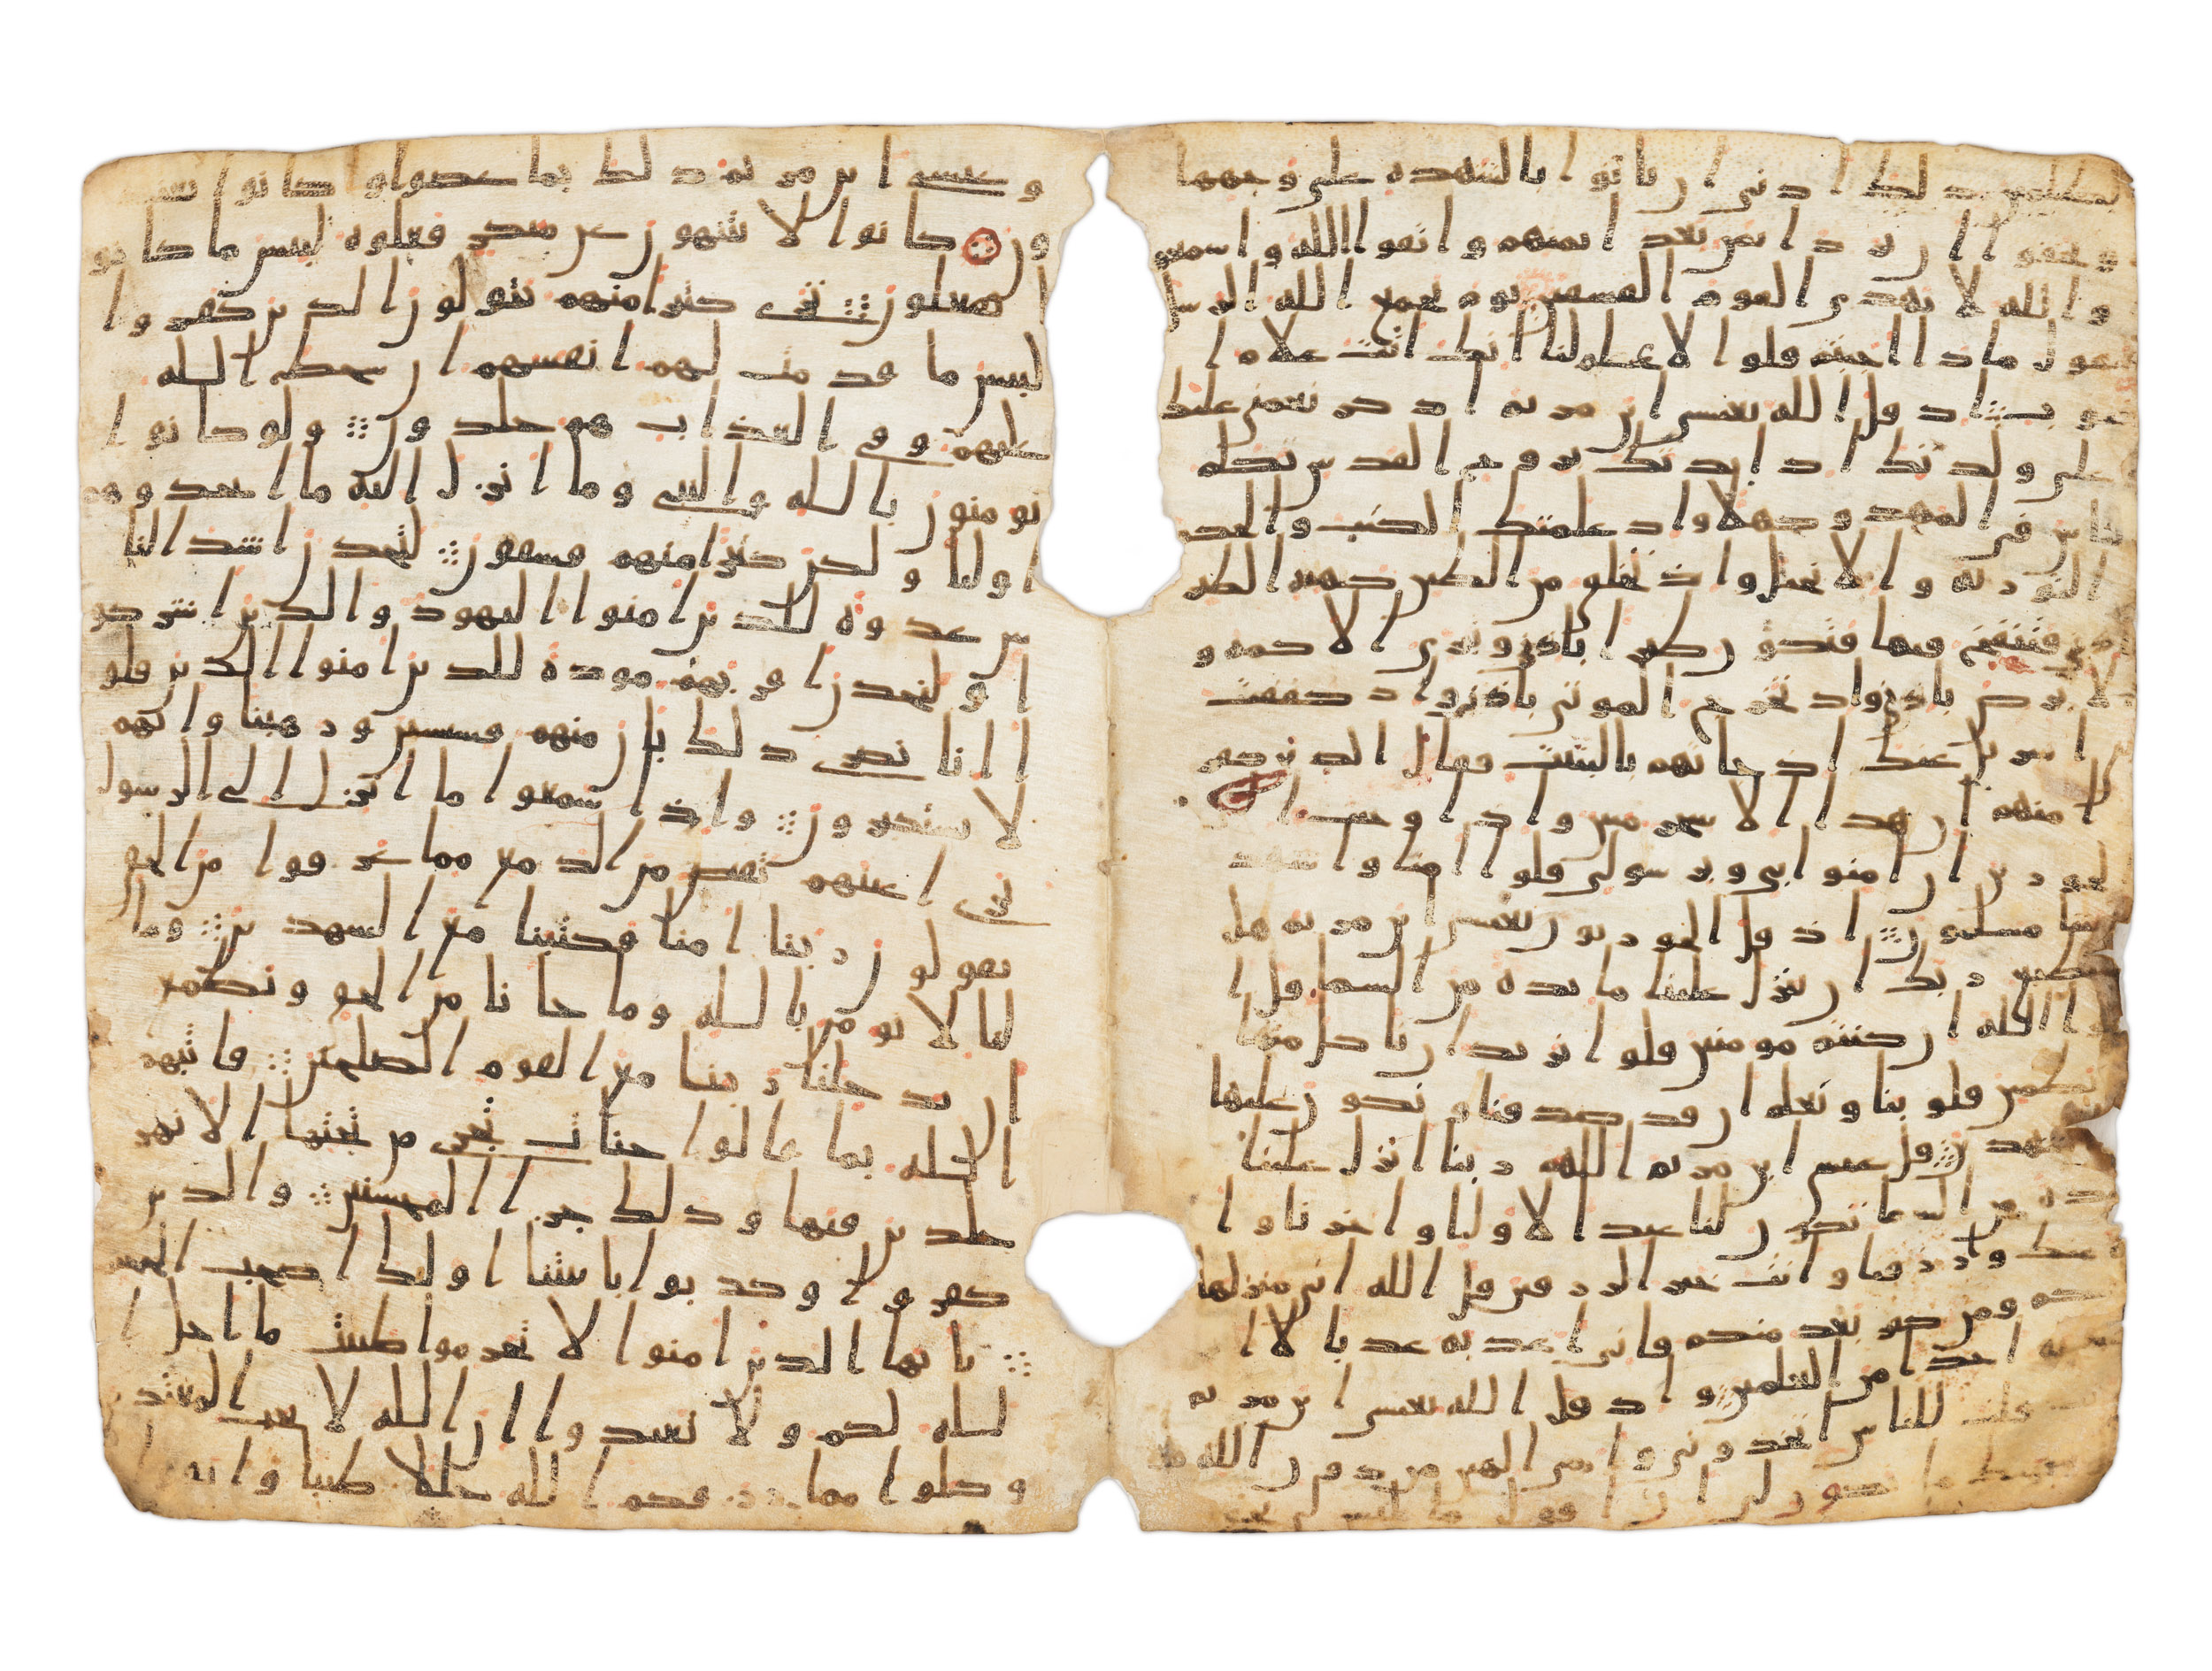 لظلمين ذلك ادنى ان ياتوا بالشهده على وجهها
و يخفوا ان ترد ايمن بعد ايمنهم واتقوا الله واسمعو
والله لا يهدى القوم الفسقين يوم يجمع الله الرسل
فيقول ماذا اجبتم قلوا لا علم لنا انك انت علام ا
لغيوب اذ قل الله يعيسى ابن مريم اذكر نعمتى عليك
على ولدتك اذ ايدتك بروح القدس تكلم
لناس فى المهد وكهلا واذ علمتك الكتب والحكم
التوريه والانجيل واذ تخلق من الطين كهيه الطير
نى فتنفخ فيها فتكون طيرا باذنى وتبرى الاكمه و
لابرص باذنى واذ تخرج الموتى باذنى واذ كففت
اسريل عنك اذ جاتهم بالبينت فقال الذين كفر
ا منهم ان هذا الا سحر مبين واذ اوحيت ا
لحورين ان امنوا بى وبرسولى قلوا امنا واشهد
ننا مسلمون اذ قل الحوريون يعيسى ابن مريم هل
يستطيع ربك ان ينزل علينا مايده من السما قل ا
وا الله ان كنتم مومنين قلوا نريد ان ناكل منها
تطمين قلوبنا ونعلم ان قد صدقتنا ونكون عليها
لشهدين قل عيسى ابن مريم اللهم ربنا انزل علينا
يده من السما تكون لنا عيدا لاولنا واخرنا وا
منك وارزقنا وانت خير الرزقين قل الله انى منزلها
عليكم فمن يكفر بعد منكم فانى اعذبه عذبا لا ا
عذبه احدا من العلمين واذ قل الله يعيسى ابن مريم
قلت للناس اتخذونى وامى الهين من دون الله
سبحنك ما يكون لى ان اقول ما ليس لى بحق
وعيسى ابن مريم ذلك بما عصوا وكانوا يعتد
ون كانوا لا ينتهون عن منكر فعلوه لبيس ما كانو
ا يفعلون ترى كثيرا منهم يتولون الذين كفروا
لبيس ما قدمت لهم انفسهم ان سخط الله
عليهم وفى العذاب هم خلدون ولو كانوا
يومنون بالله والنبى وما انزل اليه ما اتخذوهم
اوليا ولكن كثيرا منهم فسقون لتجدن اشد النا
س عدوه للذين امنوا اليهود والذين اشركو
ا ولتجدن اقربهم موده للذين امنوا الذين قلو
ا انا نصرى ذلك بان منهم قسيسين ورهبنا وانهم
لا يستكبرون واذا سمعوا ما انزل الى الرسول
ترى اعينهم تفيض من الدمع مما عرفوا من الحق
يقولون ربنا امنا فاكتبنا مع الشهدين وما
لنا لا نومن بالله وما جانا من الحق ونطمع
ان يدخلنا ربنا مع القوم الصلحين فاثبهم
الله بما قالوا جنات تجرى من تحتها الانهر
خلدين فيها وذلك جزا المحسنين والذين
كفروا وكذبوا باييتنا اوليك اصحب الجحيم
يايها الذين امنوا لا تحرموا طيبت ما احل ا
لله لكم ولا تعتدوا ان الله لا يحب المعتد
وكلوا مما رزقكم الله حللا طيبا وا